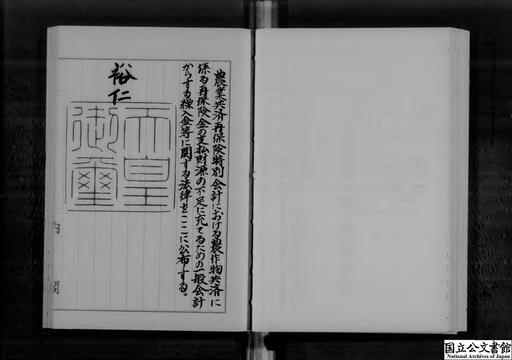 農業共済再保険特別会計における農作物共済に
係る再保険金の支払財源の不足に充てるための一般会計
からする繰入金等に関する法律をここに公布する。
裕仁
天皇
御璽
国立公文書館
National Archives of Japan